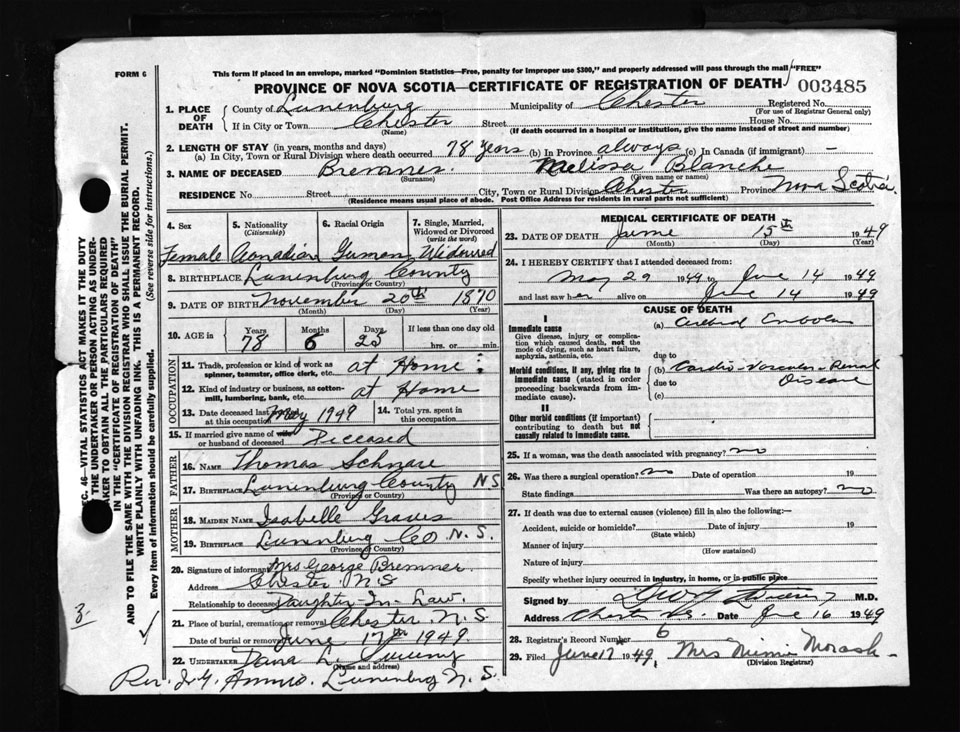 FORM 6
This form if placed in an envelope, marked "Dominion Statistics—Free, penalty for improper use $300," and properly addressed will pass through the mail "FREE"
PROVINCE OF NOVA SCOTIA—CERTIFICATE OF REGISTRATION OF DEATH 003485
1. PLACE OF DEATH
County of Lunenburg Municipality of Chester Registered No.
(For use of Registrar General only)
If in City or Town Chester Street House No.
(Name) (If death occurred in a hospital or institution, give the name instead of street and number)
2. LENGTH OF STAY (in years, months and days)
(a) In City, Town or Rural Division where death occurred 78 years (b) In Province always (c) In Canada (if immigrant) —
3. NAME OF DECEASED Bremner Melissa Blanche
(Surname) (Given name or names)
RESIDENCE No. Street City, Town or Rural Division Chester Province Nova Scotia
(Residence means usual place of abode. Post Office Address for residents in rural parts not sufficient)
4. Sex 5. Nationality (Citizenship) 6. Racial Origin 7. Single, Married, Widowed or Divorced (write the word)
Female Canadian German Widowed
8. BIRTHPLACE Lunenburg County
(Province or Country)
9. DATE OF BIRTH November 20th 1870
(Month) (Day) (Year)
10. AGE in Years Months Days If less than one day old
78 6 25 hrs. or min.
OCCUPATION
11. Trade, profession or kind of work as spinner, teamster, office clerk, etc. at Home
12. Kind of industry or business, as cotton-mill, lumbering, bank, etc. at Home
13. Date deceased last worked at this occupation May 1949 14. Total yrs. spent in this occupation
15. If married give name of wife or husband of deceased Deceased
FATHER
16. NAME Thomas Schnare
17. BIRTHPLACE Lunenburg County NS
(Province or Country)
MOTHER
18. MAIDEN NAME Isabelle Graves
19. BIRTHPLACE Lunenburg Co N.S.
(Province or Country)
20. Signature of informant Mrs George Bremner
Address Chester N S
Relationship to deceased Daughter-In-Law.
21. Place of burial, cremation or removal Chester N.S
Date of burial or removal June 17th 1949
22. UNDERTAKER Dana L.
(Name and address)
Rev. Lunenburg N. S.
MEDICAL CERTIFICATE OF DEATH
23. DATE OF DEATH June 15th 1949
(Month) (Day) (Year)
24. I HEREBY CERTIFY that I attended deceased from:
May 29 1949 to June 14 1949
and last saw her alive on June 14 1949
CAUSE OF DEATH
I
Immediate cause (a) Cerebral Embolus
Give disease, injury or complication which caused death, not the mode of dying, such as heart failure, asphyxia, asthenia, etc.
due to
Morbid conditions, if any, giving rise to immediate cause (stated in order proceeding backwards from immediate cause). (b) Cardio-Vascular-Renal
due to Disease
(c)
II
Other morbid conditions (if important) contributing to death but not causally related to immediate cause.
25. If a woman, was the death associated with pregnancy? no
26. Was there a surgical operation? no Date of operation 19
State findings Was there an autopsy? no
27. If death was due to external causes (violence) fill in also the following:—
Accident, suicide or homicide? Date of injury 19
(State which)
Manner of injury
(How sustained)
Nature of injury
Specify whether injury occurred in industry, in home, or in public place
Signed by M.D.
Address Chester N.S. Date June 16 1949
28. Registrar's Record Number 6
29. Filed June 17 1949. Mrs Minnie Morash
(Division Registrar)
C. 46—VITAL STATISTICS ACT MAKES IT THE DUTY
THE UNDERTAKER OR PERSON ACTING AS UNDER-
KER TO OBTAIN ALL THE PARTICULARS REQUIRED
IN THE "CERTIFICATE OF REGISTRATION OF DEATH"
AND TO FILE THE SAME WITH THE DIVISION REGISTRAR WHO SHALL ISSUE THE BURIAL PERMIT.
WRITE PLAINLY WITH UNFADING INK. THIS IS A PERMANENT RECORD.
Every item of information should be carefully supplied. (See reverse side for instructions.)